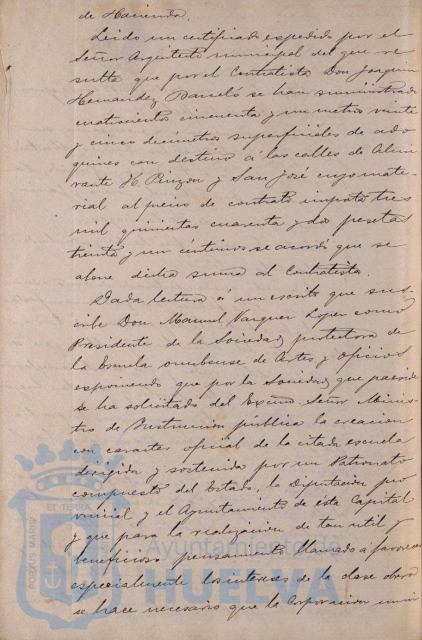 de Hacienda.
Leido un certificado expedido por el
Señor Arquitecto municipal del que re
sulta que por el Contratista Don Joaquin
Hernandez Barceló se han suministrado
cuatrocientos cincuenta y un metros veinte
y cinco decimetros superficiales de ado
quines con destino á las calles de Almi
rante H. Pinzon y San José cuyo mate-
rial al precio de contrato importa tres
mil quinientas cuarenta y dos pesetas
treinta y un centimos se acordó que se
abone dicha suma al Contratista.
Dada lectura á un escrito que sus-
cribe Don Manuel Vazquez Lopez como
Presidente de la Sociedad protectora de
la Escuela onubense de Artes y oficios
exponiendo que por la Sociedad que preside
se ha solicitado del Excmo Señor Minis-
tro de Instrucción pública la creacion
con caracter oficial de la citada escuela
dirigida y sostenida por un Patronato
compuesto del Estado, la Diputacion pro
vincial y el Ayuntamiento de esta Capital
y que para la realizacion de tan util y
beneficioso pensamiento llamado á favorecer
especialmente los intereses de la clase obrera
se hace necesario que la Corporacion
PORTUS MARIS
ET TERRAE
Ayuntamiento de
HUELVA